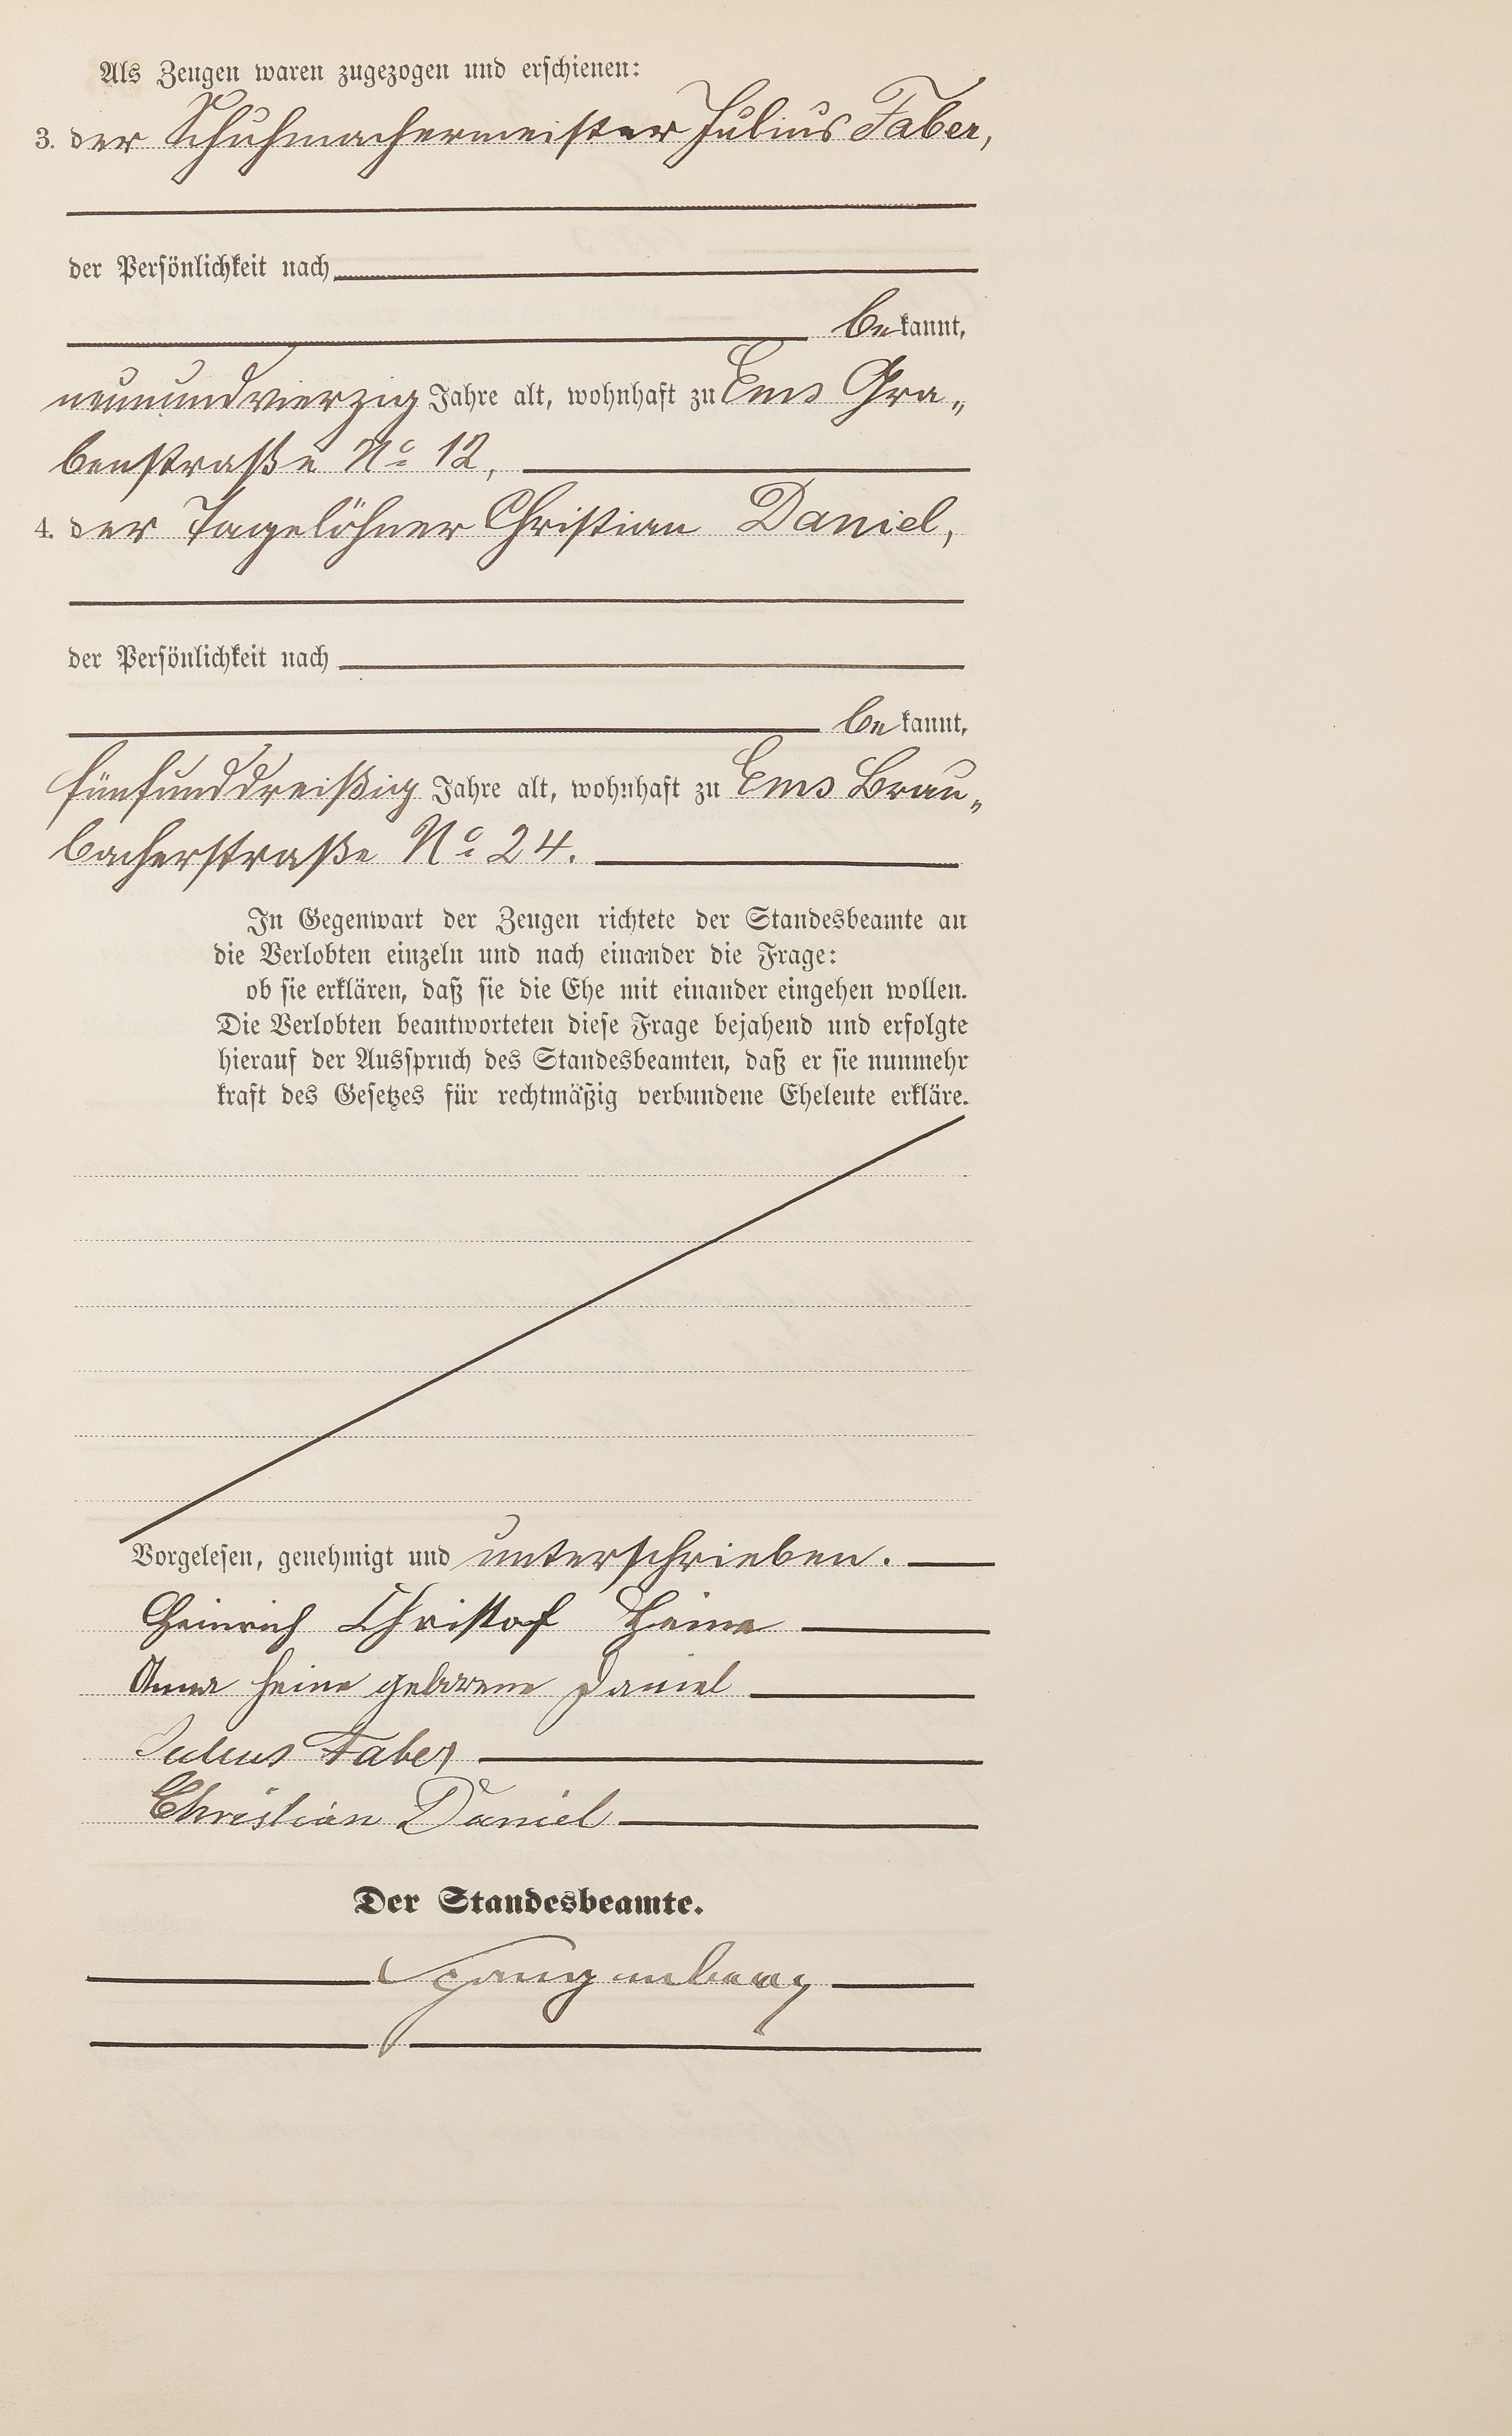 Als Zeugen waren zugezogen und erschienen:
3. der Schuhmachermeister Julius Faber,
der Persönlichkeit nach
bekannt,
neunundvierzig Jahre alt, wohnhaft zu Ems Gra„
benstraße No 12,
4. der Tagelöhner Christian Daniel,
der Persönlichkeit nach
bekannt,
fünfunddreißig Jahre alt, wohnhaft zu Ems Brau„
bacherstraße No 24.
In Gegenwart der Zeugen richtete der Standesbeamte an
die Verlobten einzeln und nach einander die Frage:
ob sie erklären, daß sie die Ehe mit einander eingehen wollen.
Die Verlobten beantworteten diese Frage bejahend und erfolgte
hierauf der Ausspruch des Standesbeamten, daß er sie nunmehr
kraft des Gesetzes für rechtmäßig verbundene Eheleute erkläre.
Vorgelesen, genehmigt und unterschrieben.
Heinrich Christof Heine
Anna Heine geborene Daniel
Julius Faber
Christian Daniel
Der Standesbeamte.
Spangenberg